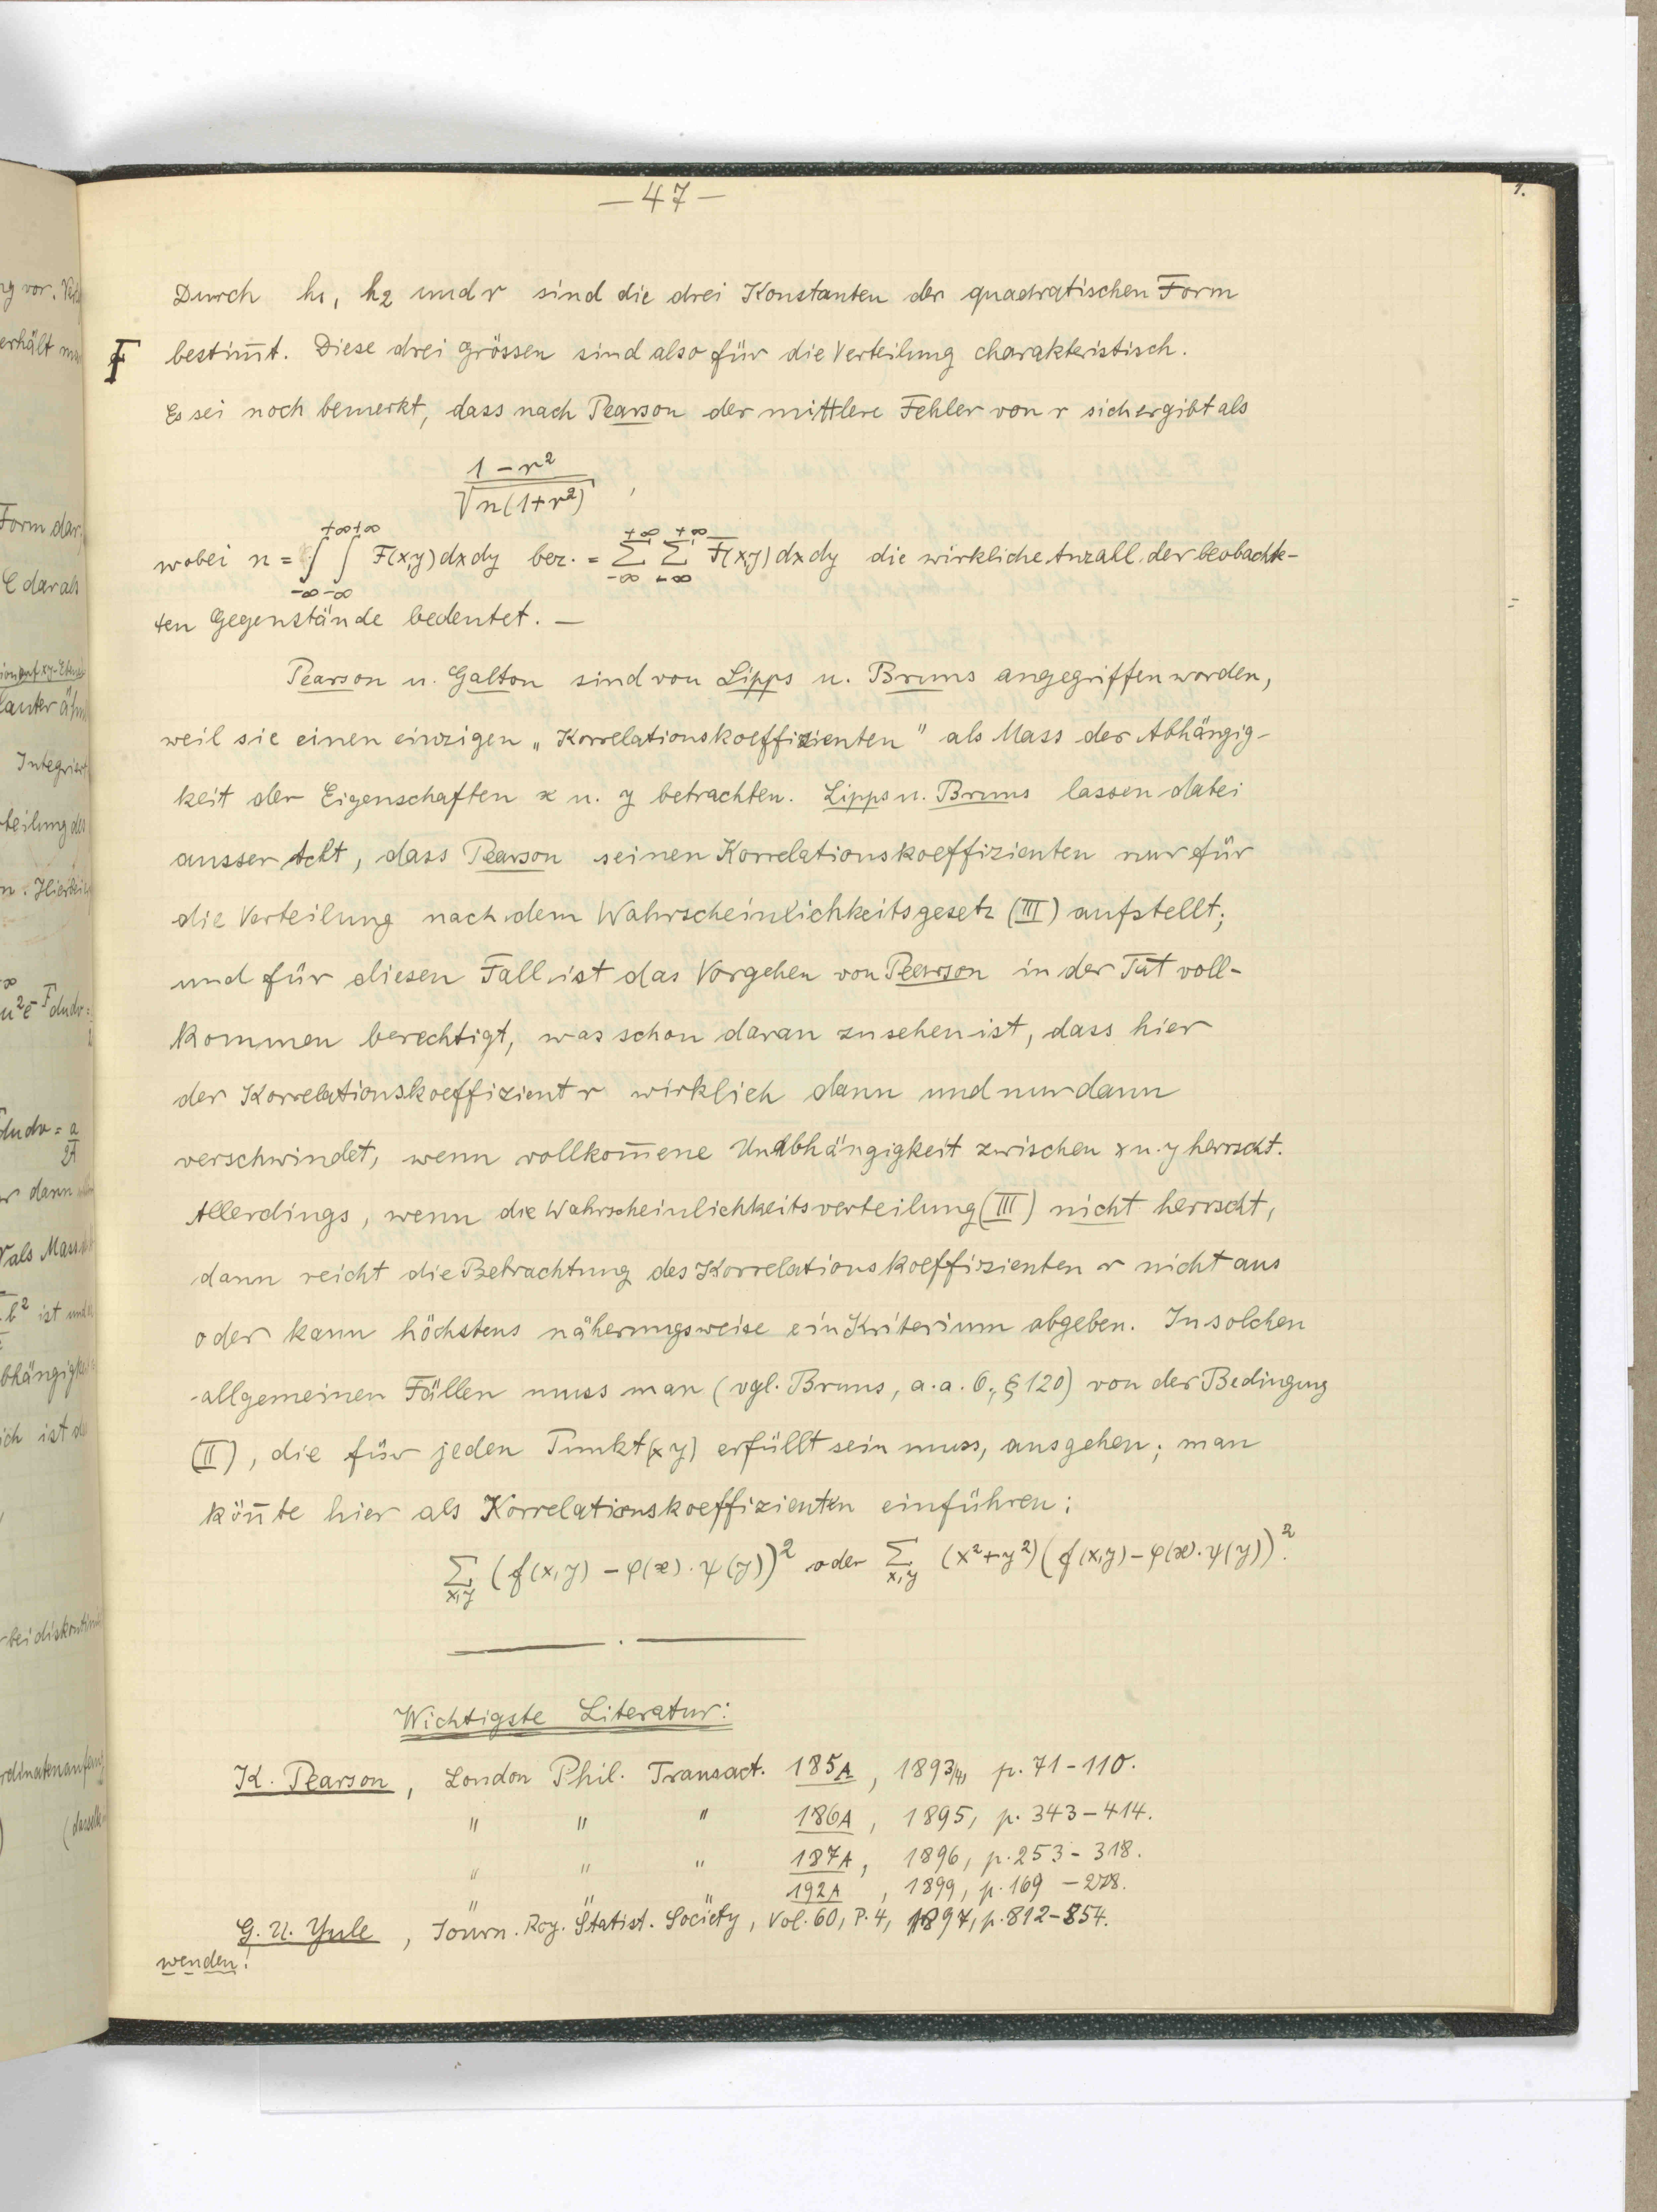 — 47 —
Durch h1, h2 und r sind die drei Konstanten der quadratischen Form
F bestim̅t. Diese drei Grössen sind also für die Verteilung charakteristisch.
Es sei noch bemerkt, dass nach Pearson der mittlere Fehler von r sich ergibt als
(1 – r²) / √n(1+r²) ,
wobei n = ∫_{-∞}^{+∞} ∫_{-∞}^{+∞} F(x,y) dx dy bez. = Σ_{-∞}^{+∞} Σ_{-∞}^{+∞} F(x,y) dx dy die wirkliche Anzall der beobachte-
ten Gegenstände bedeutet. —
Pearson u. Galton sind von Lipps u. Bruns angegriffen worden,
weil sie einen einzigen „Korrelationskoeffizienten" als Mass der Abhängig-
keit der Eigenschaften x u. y betrachten. Lipps u. Bruns lassen dabei
ausser Acht, dass Pearson seinen Korrelationskoeffizienten nur für
die Verteilung nach dem Wahrscheinlichkeitsgesetz (III) aufstellt;
und für diesen Fall ist das Vorgehen von Pearson in der Tat voll-
kommen berechtigt, was schon daran zu sehen ist, dass hier
der Korrelationskoeffizient r wirklich dann und nur dann
verschwindet, wenn vollkom̅ene Unabhängigkeit zwischen x u. y herrscht.
Allerdings, wenn die Wahrscheinlichkeitsverteilung (III) nicht herrscht,
dann reicht die Betrachtung des Korrelationskoeffizienten r nicht aus
oder kann höchstens näherungsweise ein Kriterium abgeben. In solchen
allgemeinen Fällen muss man (vgl. Bruns, a. a. O., § 120) von der Bedingung
(II), die für jeden Punkt (x y) erfüllt sein muss, ausgehen; man
kön̅te hier als Korrelationskoeffizienten einführen:
Σ_{x,y} (f(x,y) – φ(x) · ψ(y))² oder Σ_{x,y} (x²+y²)(f(x,y) – φ(x) · ψ(y))².
Wichtigste Literatur:
K. Pearson, London Phil. Transact. 185A, 1893/4, p. 71-110.
" " " 186A, 1895, p. 343-414.
" " " 187A, 1896, p. 253-318.
" " " 192A, 1899, p. 169-278.
G. U. Yule, Journ. Roy. Statist. Society, Vol. 60, P. 4, 1897, p. 812-854.
wenden!